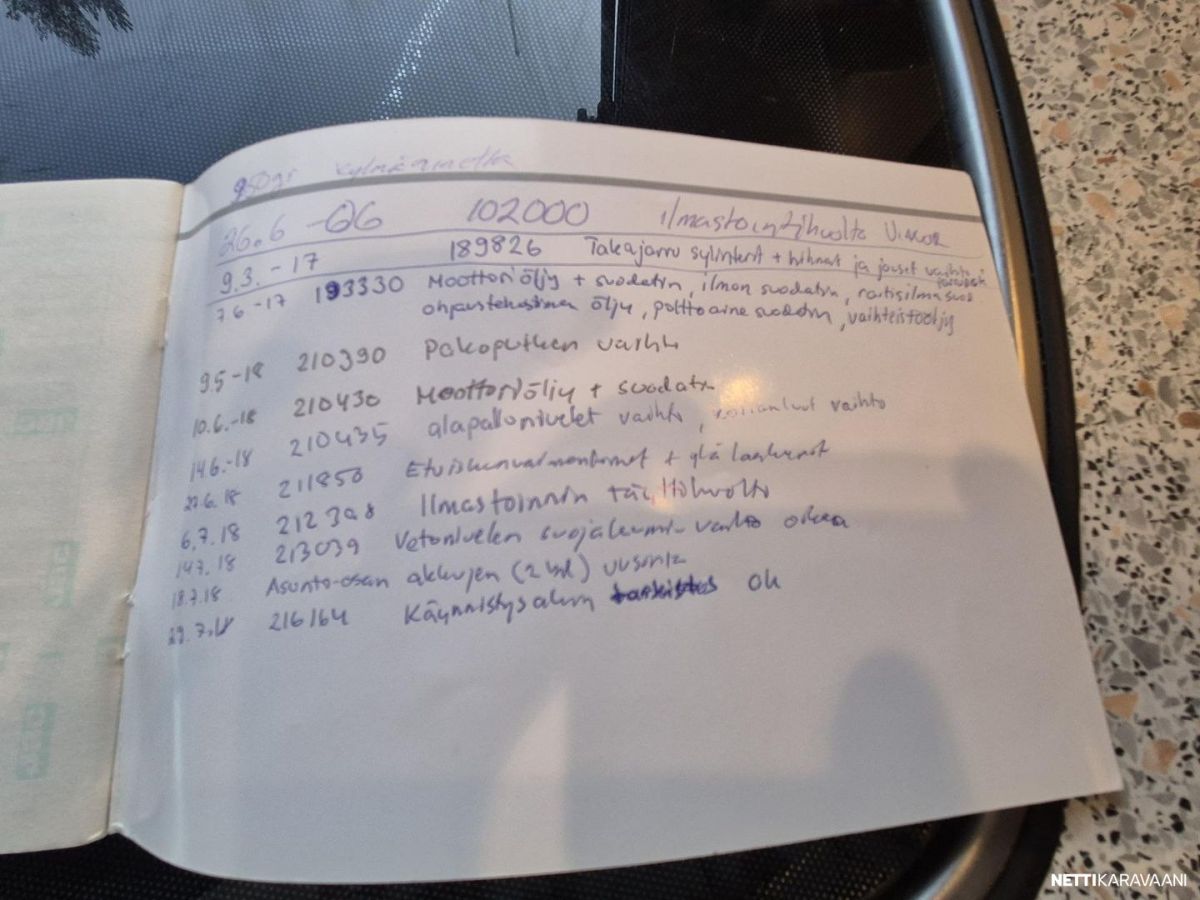 950gr kylmäainetta
26.6 -06 102000 ilmastointihuolto
9.3.-17 189826 Takajarru sylinterit + hihnat ja jouset vaihto
7.6-17 193330 Moottoriöljy + suodatin, ilman suodatin, raitisilma suod
ohjaustehostimen öljy, polttoaine suodatin, vaihteistoöljy
9.5-18 210390 Pakoputken vaihto
10.6.-18 210430 Moottoriöljy + suodatin
14.6.-18 210435 alapallonivelet vaihto, vaihto
211850 Etuiskunvaimentimet + ylä laakerit
6.7.18 212398 Ilmastoinnin täyttöhuolto
14.7.18 213039 Vetonivelen suojakumin vaihto oikea
18.7.18 Asunto-osan akkujen (2 kpl) uusinta
29.7.18 216164 Käynnistysakun tarkistus ok
NETTIKARAVAANI